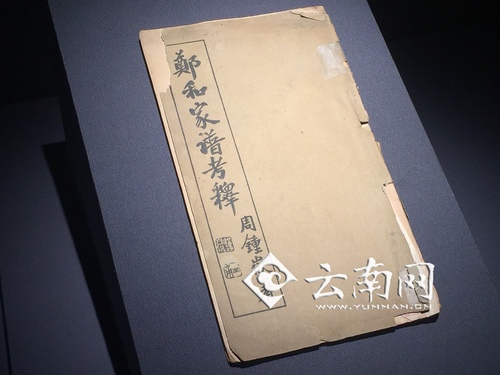 鄭和家譜考釋
周鍾
云南网
WWW.YUNNAN.CN